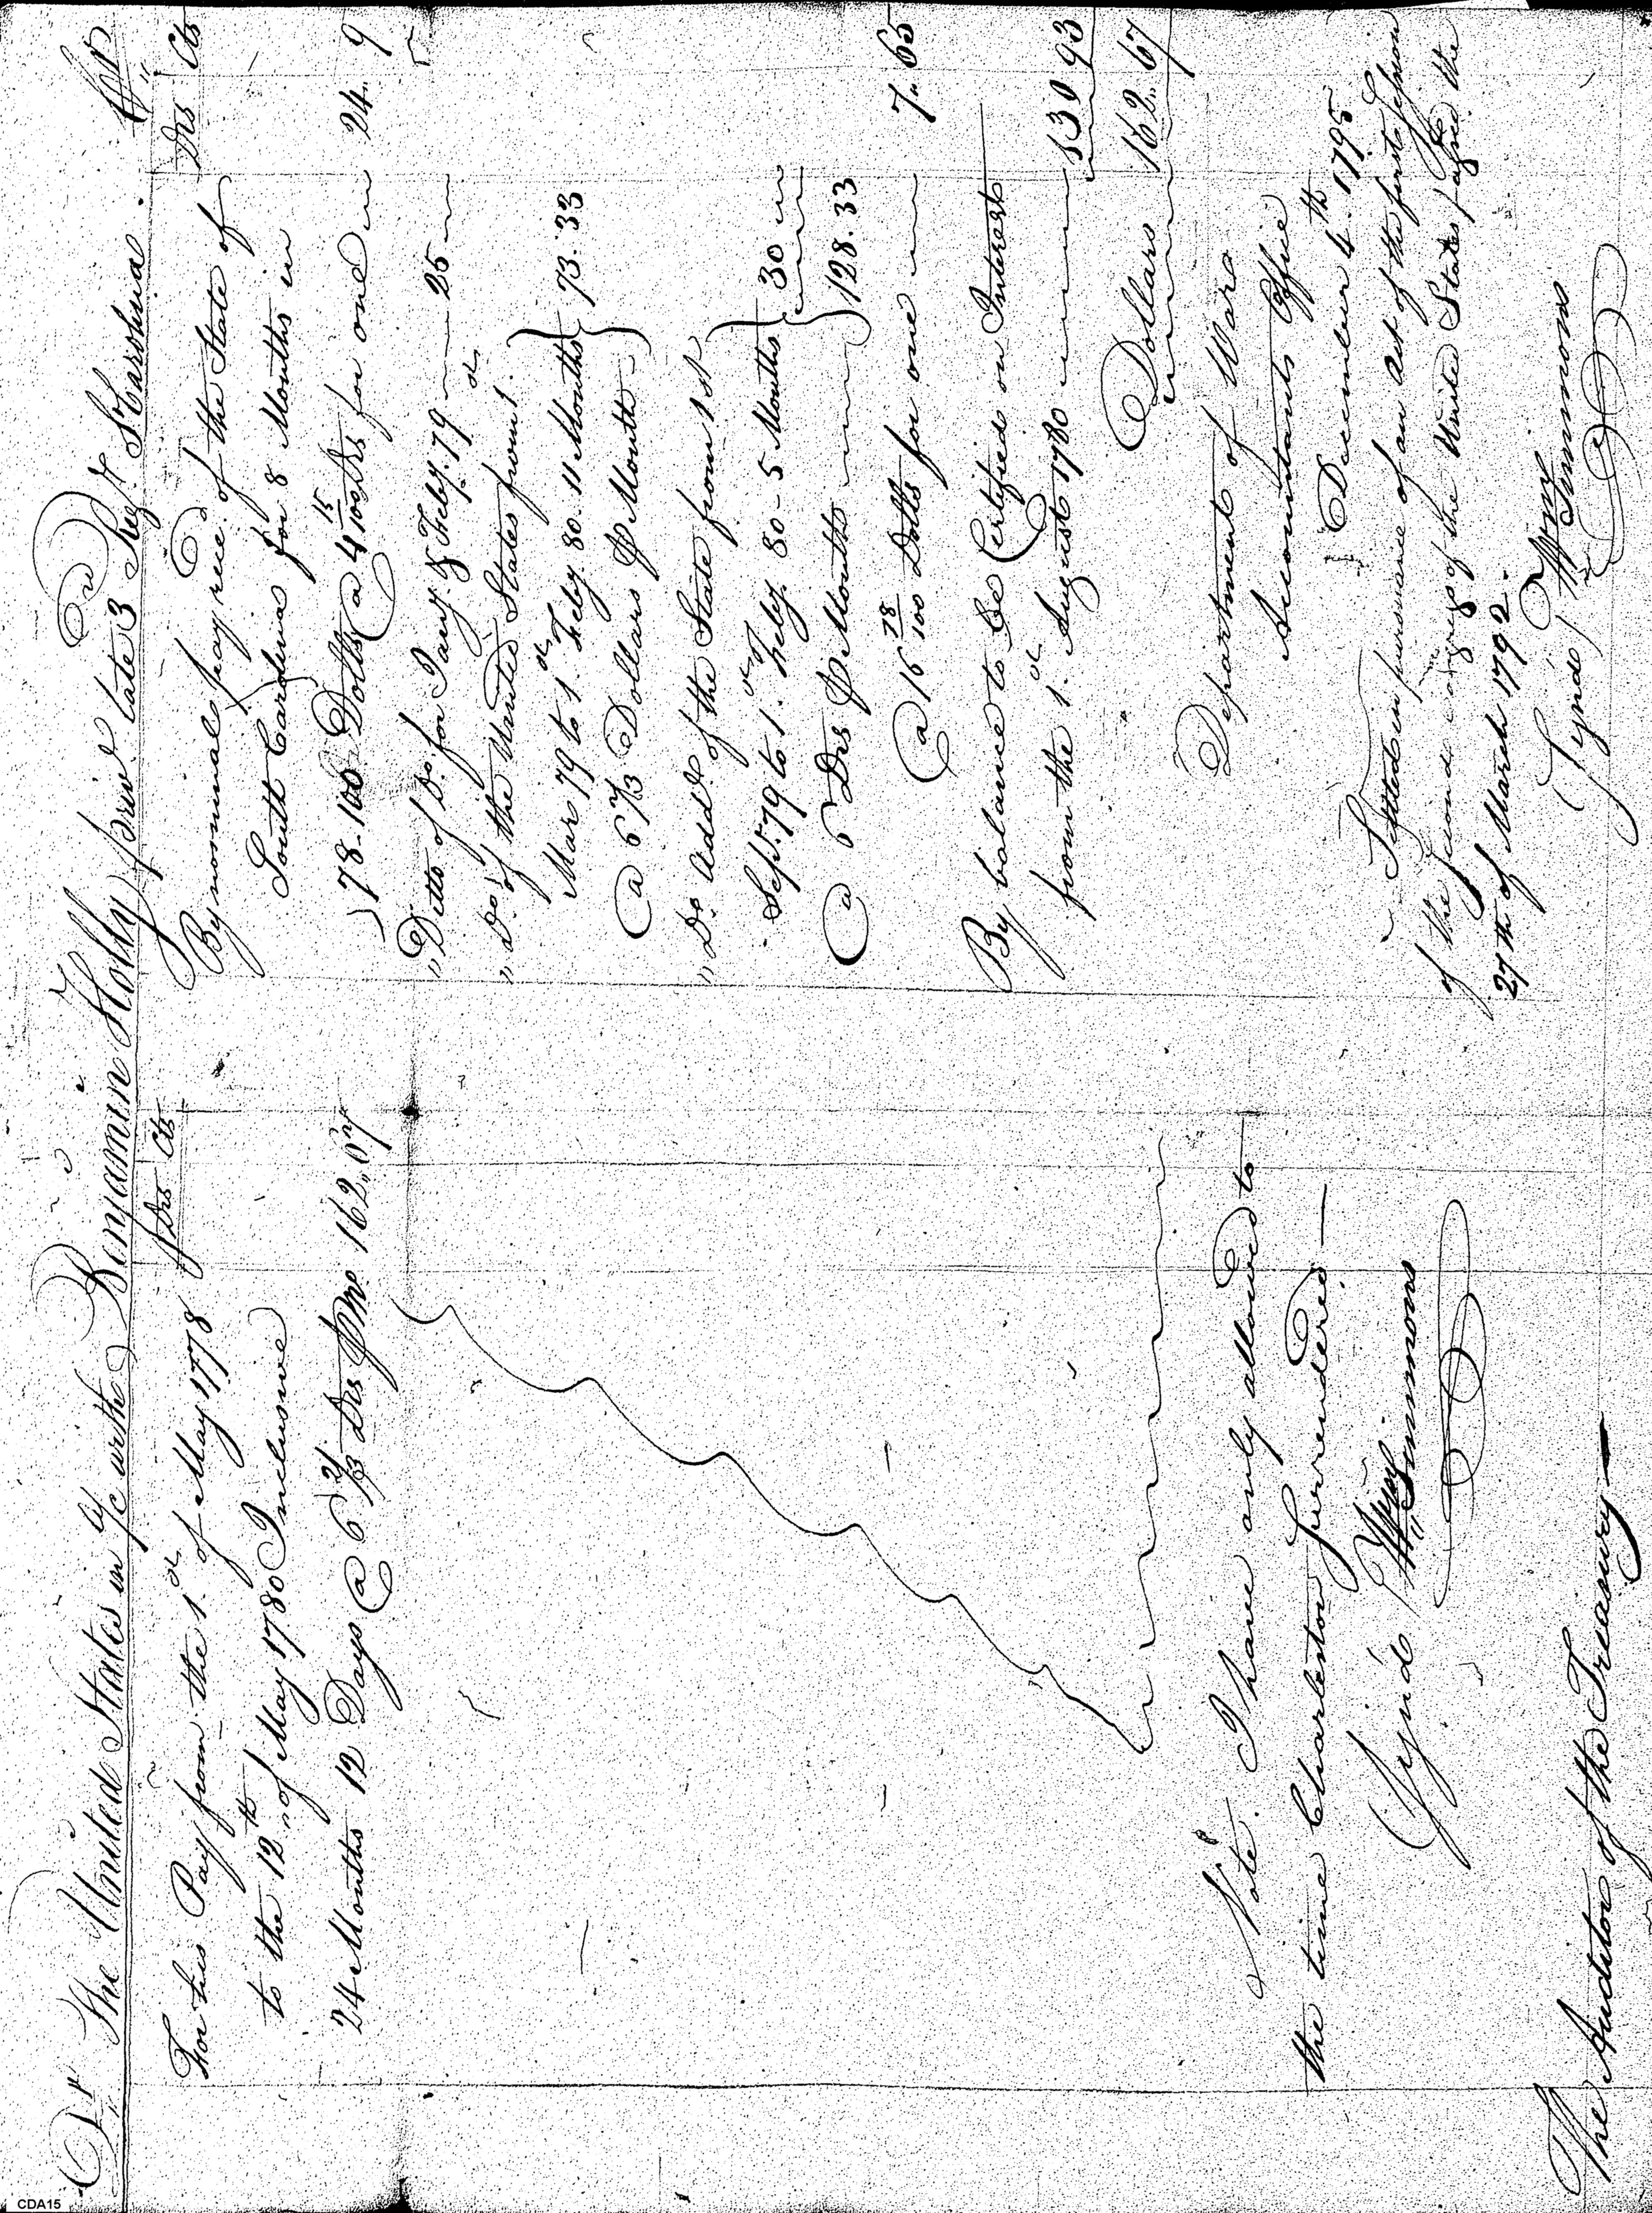 Dr The United States in a/c with Benjamin Holly priv.t late 3 Reg.t S Carolina. Cr
Drs Cts
For his Pay from the 1.st of May 1778
to the 12th of May 1780 Inclusive
24 Months 12 Days @ 6 2/3 Drs P Mo. 162.67
Note. I have only allowed to
the time Charleston surrendered —
Sign'd Wm Simmons
The Auditor of the Treasury —
Drs Cts
By nominal pay rec.d of the State of
South Carolina for 8 Months in
78. 100 Dolls @ 4 15/100ths for one 24 9
" Ditto of Do. for Jany. & Feby. 79 — 25
" Do. of the United States from 1.st
Mar 79 to 1.st Feby. 80. 11 Months 73.33
@ 6 2/3 Dollars P Month
" Do. Add.l of the State from 1st
Sept. 79 to 1.st Feby 80 - 5 Months 30
@ 6 Drs P Month 128.33
@ 16 78/100 Dolls for one 7" 65
By balance to be Certified on Interest
from the 1.st August 1780 130 93
Dollars 162.67
Department of War
Accountants Office
December 4.th 1795
Settled in pursuance of an act of the first Session
of the second congress of the United States passed the
27th of March 1792.
Signd Wm Simmons
CDA15